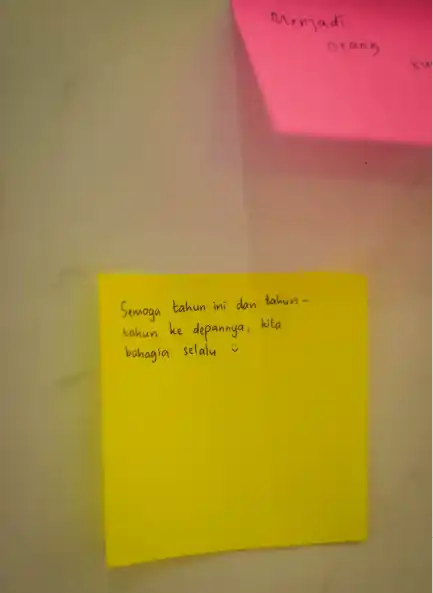 Menjadi
orang
Semoga tahun ini dan tahun-
tahun ke depannya, kita
bahagia selalu ü